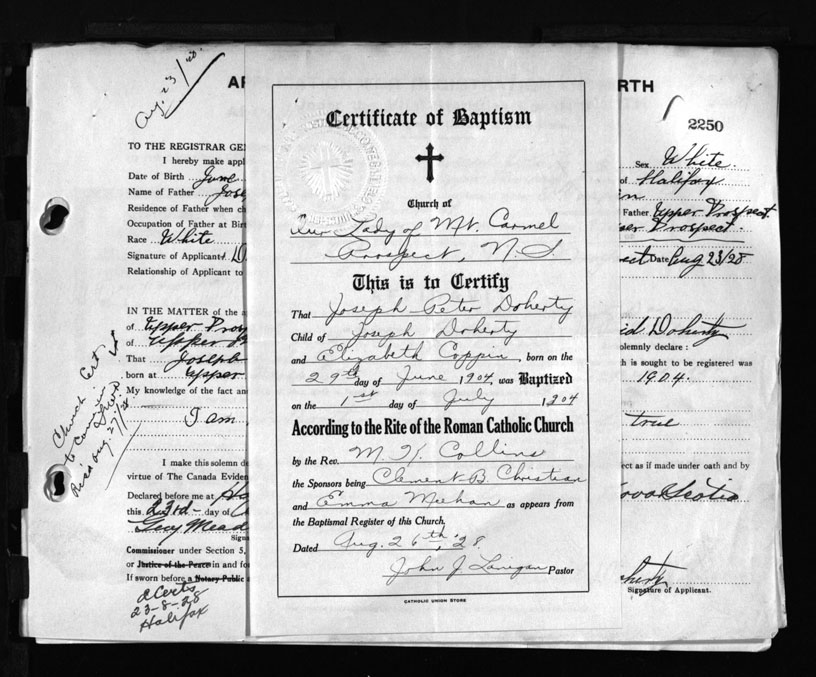 Aug. 23/28.
AP
RTH
2250
TO THE REGISTRAR GEN
I hereby make appl
Date of Birth June
Name of Father Jose
Residence of Father when ch
Occupation of Father at Bir
Race White
Signature of Applicant
Relationship of Applicant to
IN THE MATTER of the a
of Upper Pros
of Upper
That Joseph
born at Upper
My knowledge of the fact and
I am
I make this solemn d
virtue of The Canada Eviden
Declared before me at
this 23rd day of
Geo. Mead
Signa
Commissioner under Section 5,
or Justice of the Peace in and fo
If sworn before a Notary Public
2 Certs
23-8-28
Halifax
Church Cert
to Commission
Rec'd Aug. 27/28
Certificate of Baptism
Church of
Our Lady of Mt. Carmel
Prospect, N.S.
This is to Certify
That Joseph Peter Doherty
Child of Joseph Doherty
and Elizabeth Coppin, born on the
29th day of June 1904, was Baptized
on the 1st day of July 1904
According to the Rite of the Roman Catholic Church
by the Rev. M. K. Collins
the Sponsors being Clement B. Christian
and Emma Meehan as appears from
the Baptismal Register of this Church.
Dated Aug. 26th, '28
John J. Lanegan Pastor
CATHOLIC UNION STORE
Sex White.
of Halifax
Father Upper Prospect.
per Prospect.
Date Aug 23/28
Doherty
olemnly declare :
h is sought to be registered was
1904.
true
ect as if made under oath and by
Nova Scotia
Signature of Applicant.